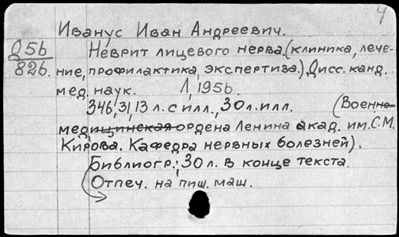 4
Иванус Иван Андреевич.
Д56 Неврит лицевого нерва.(клиника, лече-
826. ние, профилактика, экспертиза.) Дисс. канд.
мед. наук. Л, 1956.
346, 31, 13 л. с илл., 30 л. илл. (Военно-
медицинская ордена Ленина акад. им. С.М.
Кирова. Кафедра нервных болезней).
Библиогр.; 30 л. в конце текста.
Отпеч. на пиш. маш.